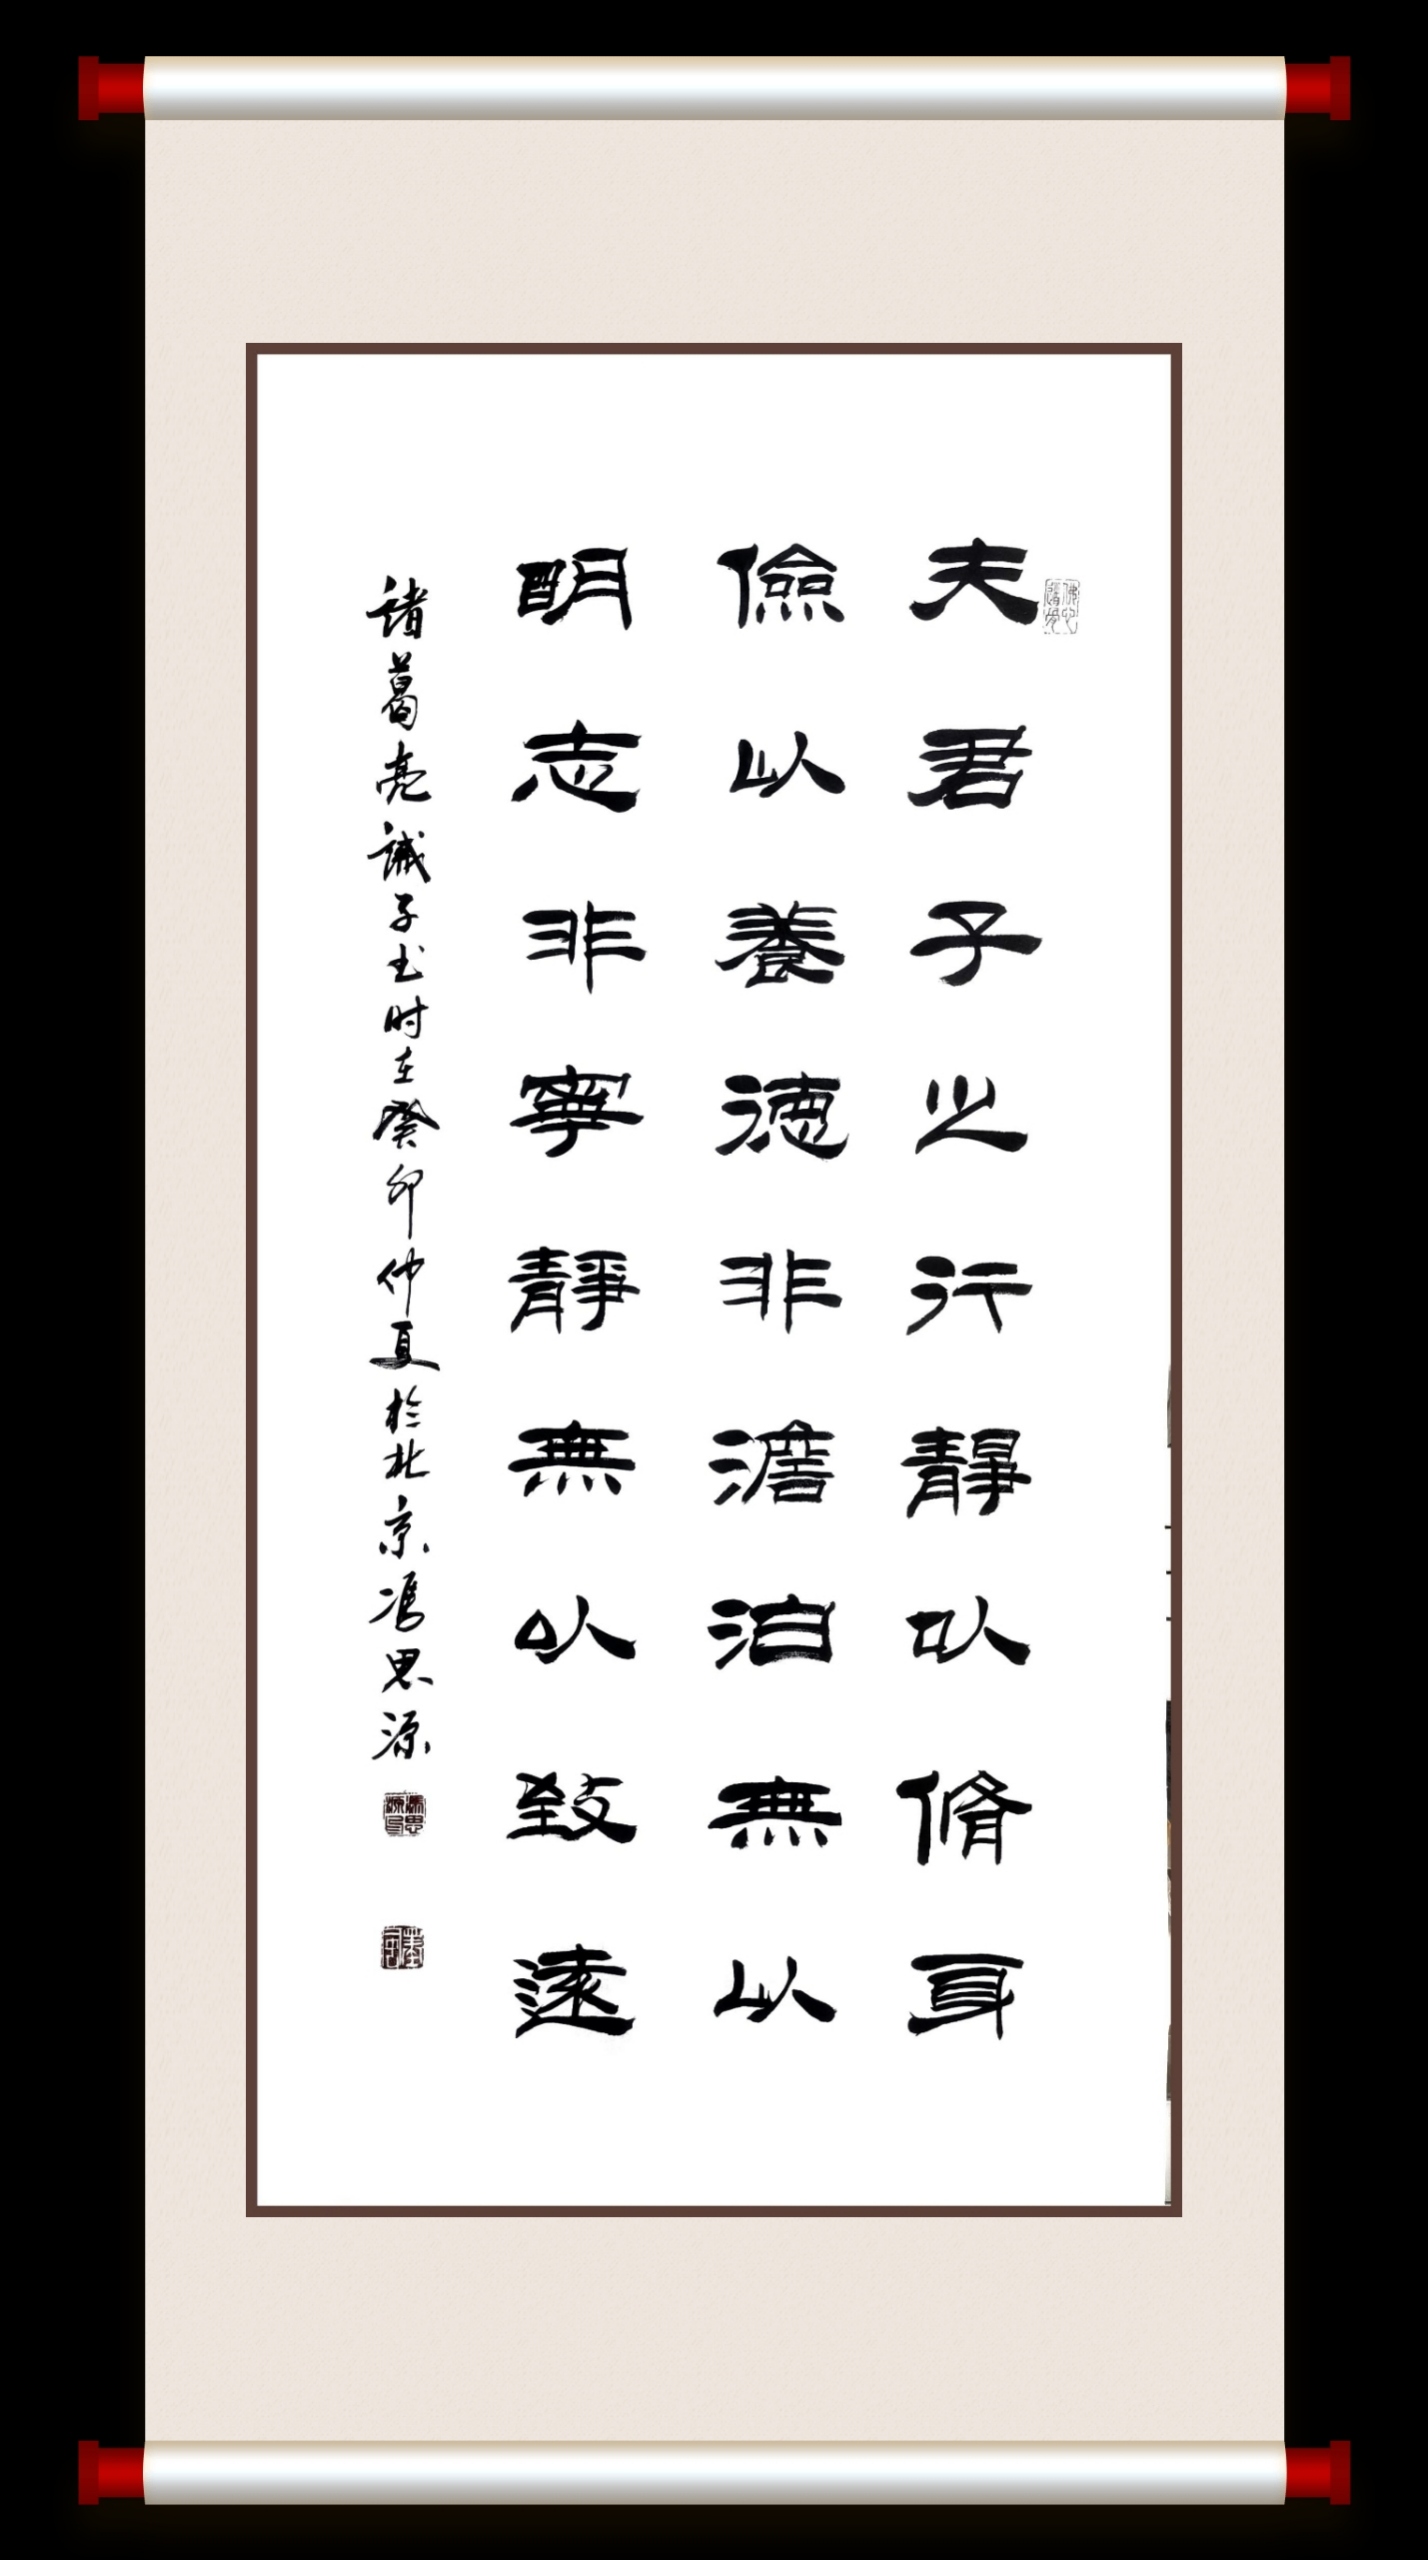 夫君子之行靜以脩身
儉以養德非澹泊無以
明志非寧靜無以致遠
诸葛亮誡子书时在癸卯仲夏於北京冯思源